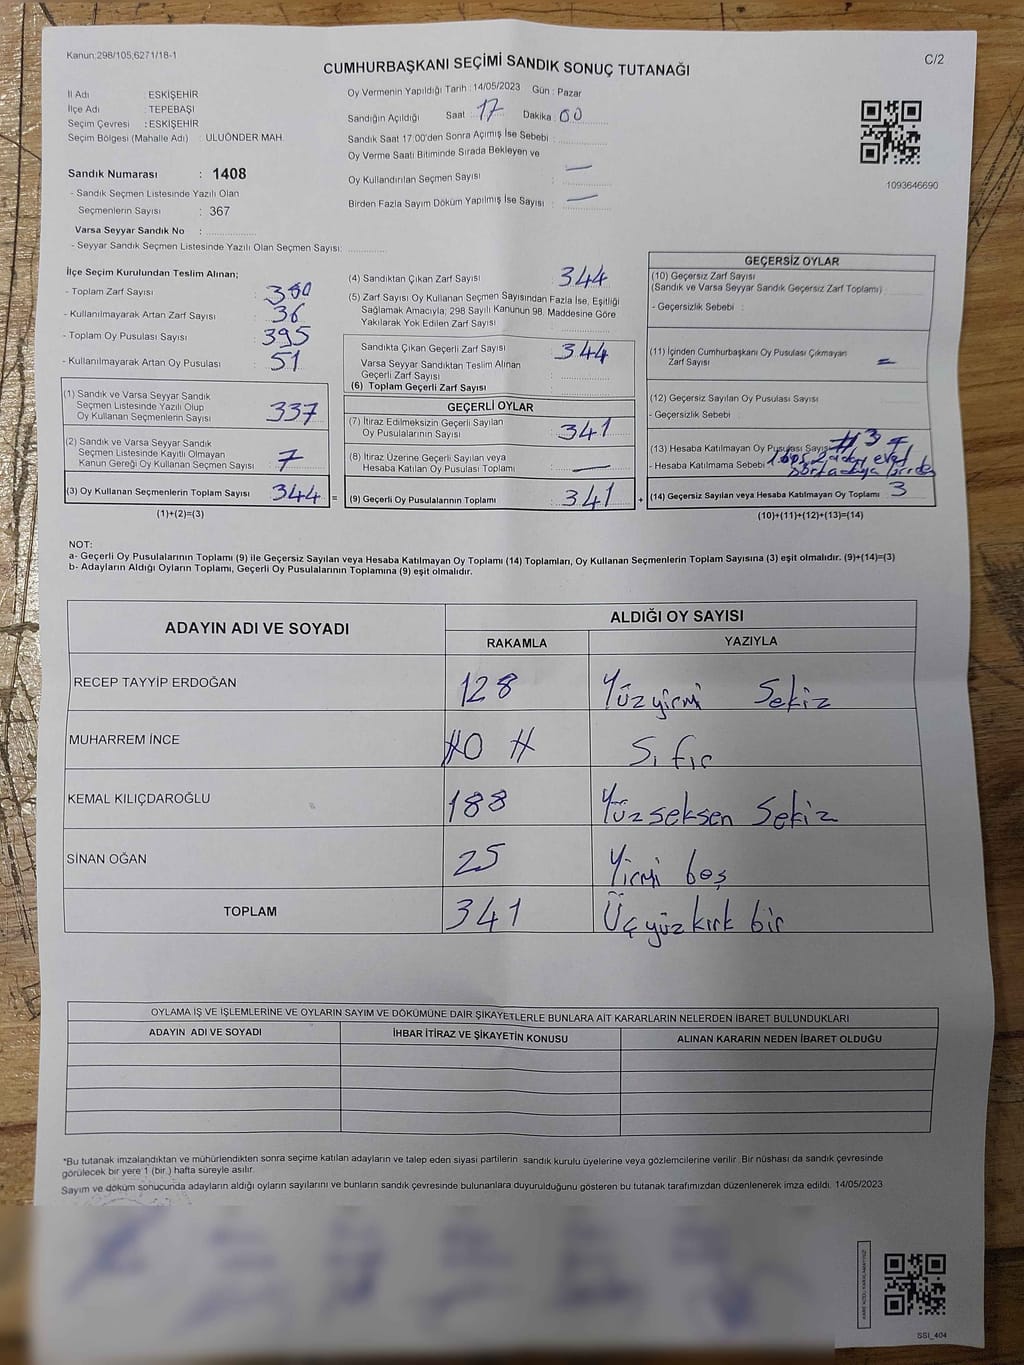 Kanun:298/105,6271/18-1
C/2
CUMHURBAŞKANI SEÇİMİ SANDIK SONUÇ TUTANAĞI
İl Adı : ESKİŞEHİR
İlçe Adı : TEPEBAŞI
Seçim Çevresi : ESKİŞEHİR
Seçim Bölgesi (Mahalle Adı) : ULUÖNDER MAH.
Sandık Numarası : 1408
- Sandık Seçmen Listesinde Yazılı Olan
Seçmenlerin Sayısı : 367
Varsa Seyyar Sandık No :
- Seyyar Sandık Seçmen Listesinde Yazılı Olan Seçmen Sayısı:
Oy Vermenin Yapıldığı Tarih : 14/05/2023 Gün : Pazar
Sandığın Açıldığı Saat : 17 Dakika : 00
Sandık Saat 17:00'den Sonra Açımış İse Sebebi :
Oy Verme Saati Bitiminde Sırada Bekleyen ve
Oy Kullandırılan Seçmen Sayısı : —
Birden Fazla Sayım Döküm Yapılmış İse Sayısı : —
1093646690
İlçe Seçim Kurulundan Teslim Alınan;
- Toplam Zarf Sayısı :
- Kullanılmayarak Artan Zarf Sayısı : 36
- Toplam Oy Pusulası Sayısı : 395
- Kullanılmayarak Artan Oy Pusulası : 51
(1) Sandık ve Varsa Seyyar Sandık
Seçmen Listesinde Yazılı Olup
Oy Kullanan Seçmenlerin Sayısı 337
(2) Sandık ve Varsa Seyyar Sandık
Seçmen Listesinde Kayıtlı Olmayan
Kanun Gereği Oy Kullanan Seçmen Sayısı 7
(3) Oy Kullanan Seçmenlerin Toplam Sayısı 344 =
(1)+(2)=(3)
(4) Sandıktan Çıkan Zarf Sayısı 344
(5) Zarf Sayısı Oy Kullanan Seçmen Sayısından Fazla İse, Eşitliği
Sağlamak Amacıyla; 298 Sayılı Kanunun 98. Maddesine Göre
Yakılarak Yok Edilen Zarf Sayısı :
Sandıkta Çıkan Geçerli Zarf Sayısı : 344
Varsa Seyyar Sandıktan Teslim Alınan
Geçerli Zarf Sayısı :
(6) Toplam Geçerli Zarf Sayısı :
GEÇERLİ OYLAR
(7) İtiraz Edilmeksizin Geçerli Sayılan
Oy Pusulalarının Sayısı : 341
(8) İtiraz Üzerine Geçerli Sayılan veya
Hesaba Katılan Oy Pusulası Toplamı : —
(9) Geçerli Oy Pusulalarının Toplamı : 341 +
GEÇERSİZ OYLAR
(10) Geçersiz Zarf Sayısı
(Sandık ve Varsa Seyyar Sandık Geçersiz Zarf Toplamı)
- Geçersizlik Sebebi :
(11) İçinden Cumhurbaşkanı Oy Pusulası Çıkmayan
Zarf Sayısı
(12) Geçersiz Sayılan Oy Pusulası Sayısı
- Geçersizlik Sebebi :
(13) Hesaba Katılmayan Oy Pusulası Sayısı # 3 #
- Hesaba Katılmama Sebebi
(14) Geçersiz Sayılan veya Hesaba Katılmayan Oy Toplamı 3
(10)+(11)+(12)+(13)=(14)
NOT:
a- Geçerli Oy Pusulalarının Toplamı (9) ile Geçersiz Sayılan veya Hesaba Katılmayan Oy Toplamı (14) Toplamları, Oy Kullanan Seçmenlerin Toplam Sayısına (3) eşit olmalıdır. (9)+(14)=(3)
b- Adayların Aldığı Oyların Toplamı, Geçerli Oy Pusulalarının Toplamına (9) eşit olmalıdır.
ADAYIN ADI VE SOYADI ALDIĞI OY SAYISI
RAKAMLA YAZIYLA
RECEP TAYYİP ERDOĞAN 128 Yüzyirmi Sekiz
MUHARREM İNCE #0 # Sıfır
KEMAL KILIÇDAROĞLU 188 Yüzseksen Sekiz
SİNAN OĞAN 25 Yirmi beş
TOPLAM 341 Üçyüzkırk bir
OYLAMA İŞ VE İŞLEMLERİNE VE OYLARIN SAYIM VE DÖKÜMÜNE DAİR ŞİKAYETLERLE BUNLARA AİT KARARLARIN NELERDEN İBARET BULUNDUKLARI
ADAYIN ADI VE SOYADI İHBAR İTİRAZ VE ŞİKAYETİN KONUSU ALINAN KARARIN NEDEN İBARET OLDUĞU
*Bu tutanak imzalandıktan ve mühürlendikten sonra seçime katılan adayların ve talep eden siyasi partilerin sandık kurulu üyelerine veya gözlemcilerine verilir. Bir nüshası da sandık çevresinde
görülecek bir yere 1 (bir.) hafta süreyle asılır.
Sayım ve döküm sonucunda adayların aldığı oyların sayılarını ve bunların sandık çevresinde bulunanlara duyurulduğunu gösteren bu tutanak tarafımızdan düzenlenerek imza edildi. 14/05/2023
SSI_404